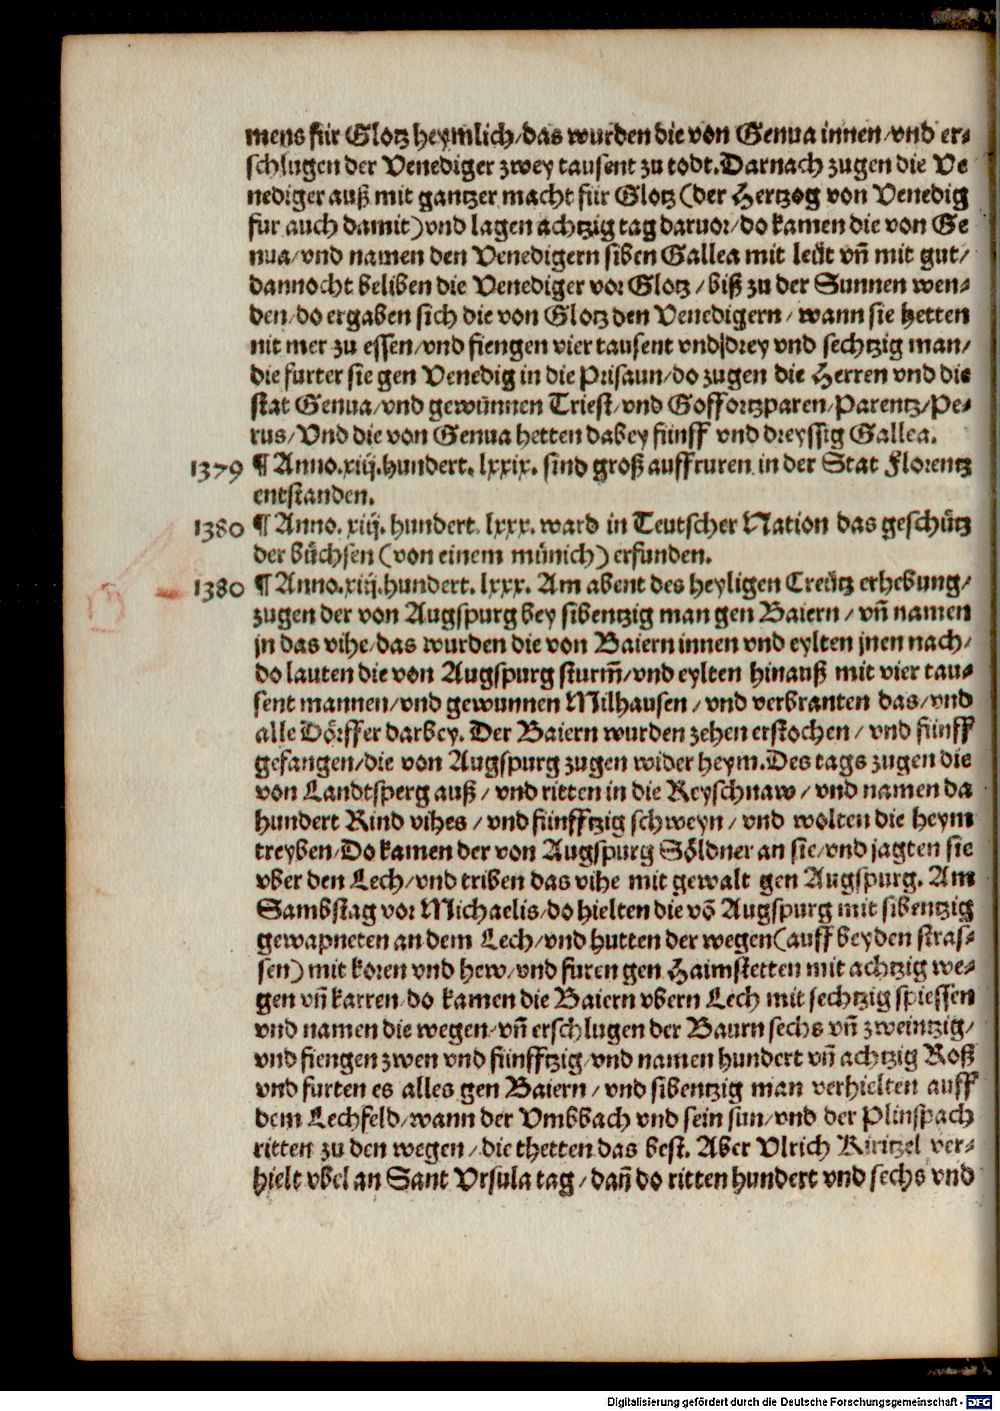 mens für Glotz heymlich/das wurden die von Genua innen/vnd er-
schlugen der Venediger zwey tausent zu todt. Darnach zugen die Ve
nediger auß mit gantzer macht für Glotz (der Hertzog von Venedig
fur auch damit) vnd lagen achtzig tag daruor/do kamen die von Ge
nua/vnd namen den Venedigern siben Gallea mit leüt vñ mit gut/
dannocht beliben die Venediger vor Glotz/biß zu der Sunnen wen-
den/do ergaben sich die von Glotz den Venedigern/wann sie hetten
nit mer zu essen/vnd fiengen vier tausent vnd drey vnd sechtzig man/
die furter sie gen Venedig in die Prisaun/do zugen die Herren vnd die
stat Genua/vnd gewünnen Triest/vnd Goffortzparen/Parentz/Pe-
rus/Vnd die von Genua hetten dabey fünff vnd dreyssig Gallea.
1379 ¶ Anno.xiij.hundert.lxxix. sind groß auffruren in der Stat Florentz
entstanden.
1380 ¶ Anno.xiij.hundert.lxxx. ward in Teutscher Nation das geschütz
der büchsen (von einem münich) erfunden.
1380 ¶ Anno.xiij.hundert.lxxx. Am abent des heyligen Creütz erhebung/
zugen der von Augspurg bey sibentzig man gen Baiern/vñ namen
jn das vihe/das wurden die von Baiern innen vnd eylten jnen nach/
do lauten die von Augspurg sturm̃/vnd eylten hinauß mit vier tau-
sent mannen/vnd gewunnen Milhausen/vnd verbranten das/vnd
alle Dörffer darbey. Der Baiern wurden zehen erstochen/vnd fünff
gefangen/die von Augspurg zugen wider heym. Des tags zugen die
von Landtsperg auß/vnd ritten in die Reyschnaw/vnd namen da
hundert Rind vihes/vnd fünfftzig schweyn/vnd wolten die heym
treyben/Do kamen der von Augspurg Söldner an sie/vnd jagten sie
vber den Lech/vnd triben das vihe mit gewalt gen Augspurg. Am
Sambstag vor Michaelis/do hielten die võ Augspurg mit sibentzig
gewapneten an dem Lech/vnd hutten der wegen (auff beyden stras-
sen) mit koren vnd hew/vnd furen gen Haimstetten mit achtzig we-
gen vñ karren/do kamen die Baiern vbern Lech mit sechtzig spiessen
vnd namen die wegen/vñ erschlugen der Baurn sechs vñ zweintzig/
vnd fiengen zwen vnd fünfftzig/vnd namen hundert vñ achtzig Roß
vnd furten es alles gen Baiern/vnd sibentzig man verhielten auff
dem Lechfeld/wann der Vmbbach vnd sein sun/vnd der Plinspach
ritten zu den wegen/die thetten das best. Aber Vlrich Kiritzel ver-
hielt vbel an Sant Vrsula tag/dañ do ritten hundert vnd sechs vnd
Digitalisierung gefördert durch die Deutsche Forschungsgemeinschaft - DFG